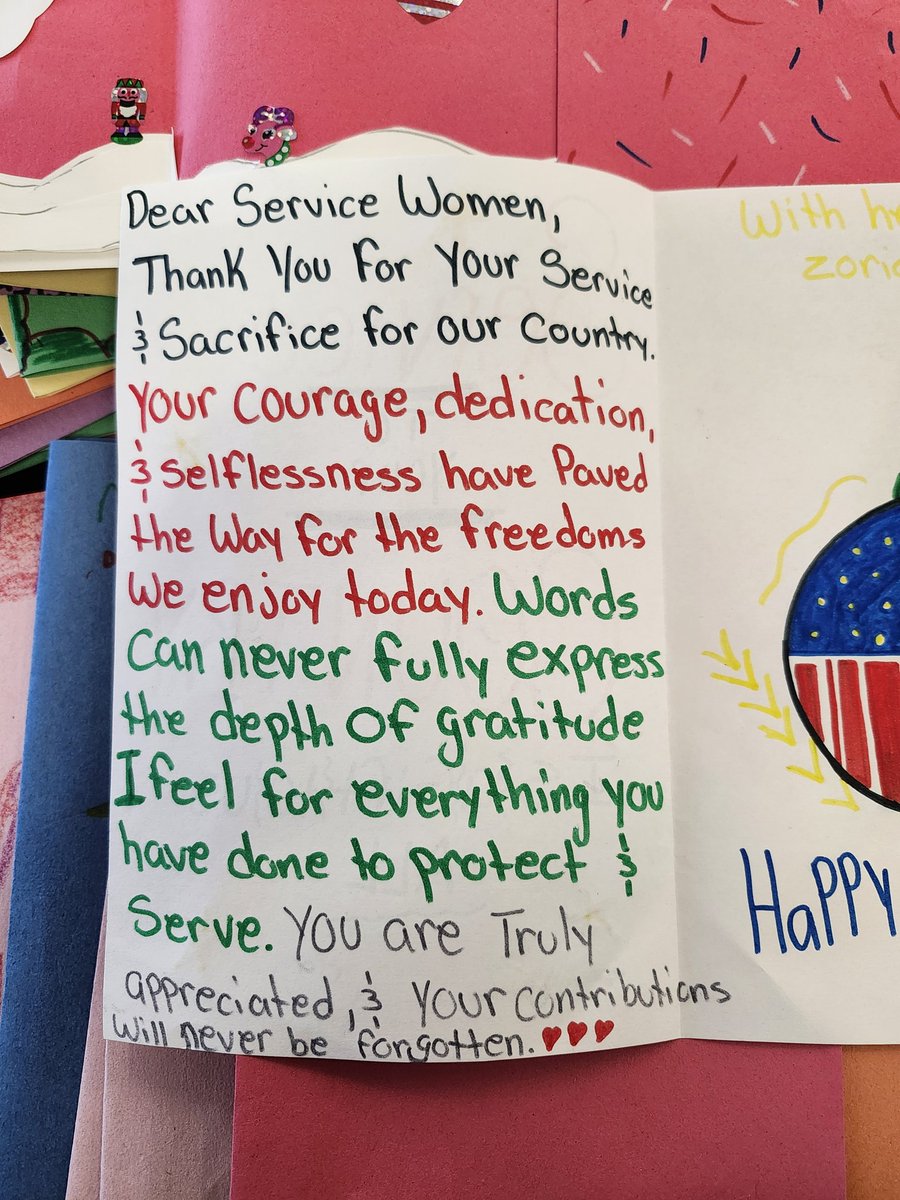 Dear Service Women,
Thank You For Your Service
& Sacrifice for our Country.
Your Courage, dedication,
& selflessness have Paved
the Way for the freedoms
We enjoy today. Words
Can never fully express
the depth of gratitude
I feel for everything you
have done to protect &
Serve. You are Truly
appreciated, & your contributions
will never be forgotten.
With
Happy